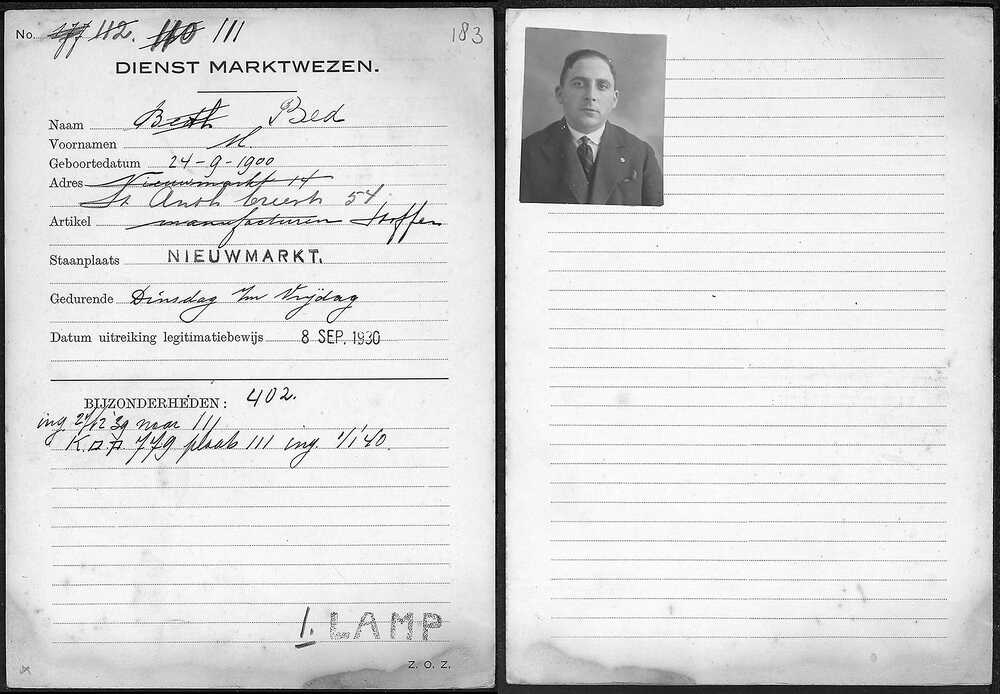 No. 177 112. 110 111
183
DIENST MARKTWEZEN.
Naam Bed
Voornamen M.
Geboortedatum 24-9-1900
Adres Nieuwmarkt 14
St. Anth breestr 54
Artikel manufacturen Stoffen
Staanplaats NIEUWMARKT.
Gedurende Dinsdag t/m Vrijdag
Datum uitreiking legitimatiebewijs 8 SEP. 1930
BIJZONDERHEDEN: 402.
ing 27/12 '39 naar 111
779 plaats 111 ing. 1/1'40.
1. LAMP
Z. O. Z.